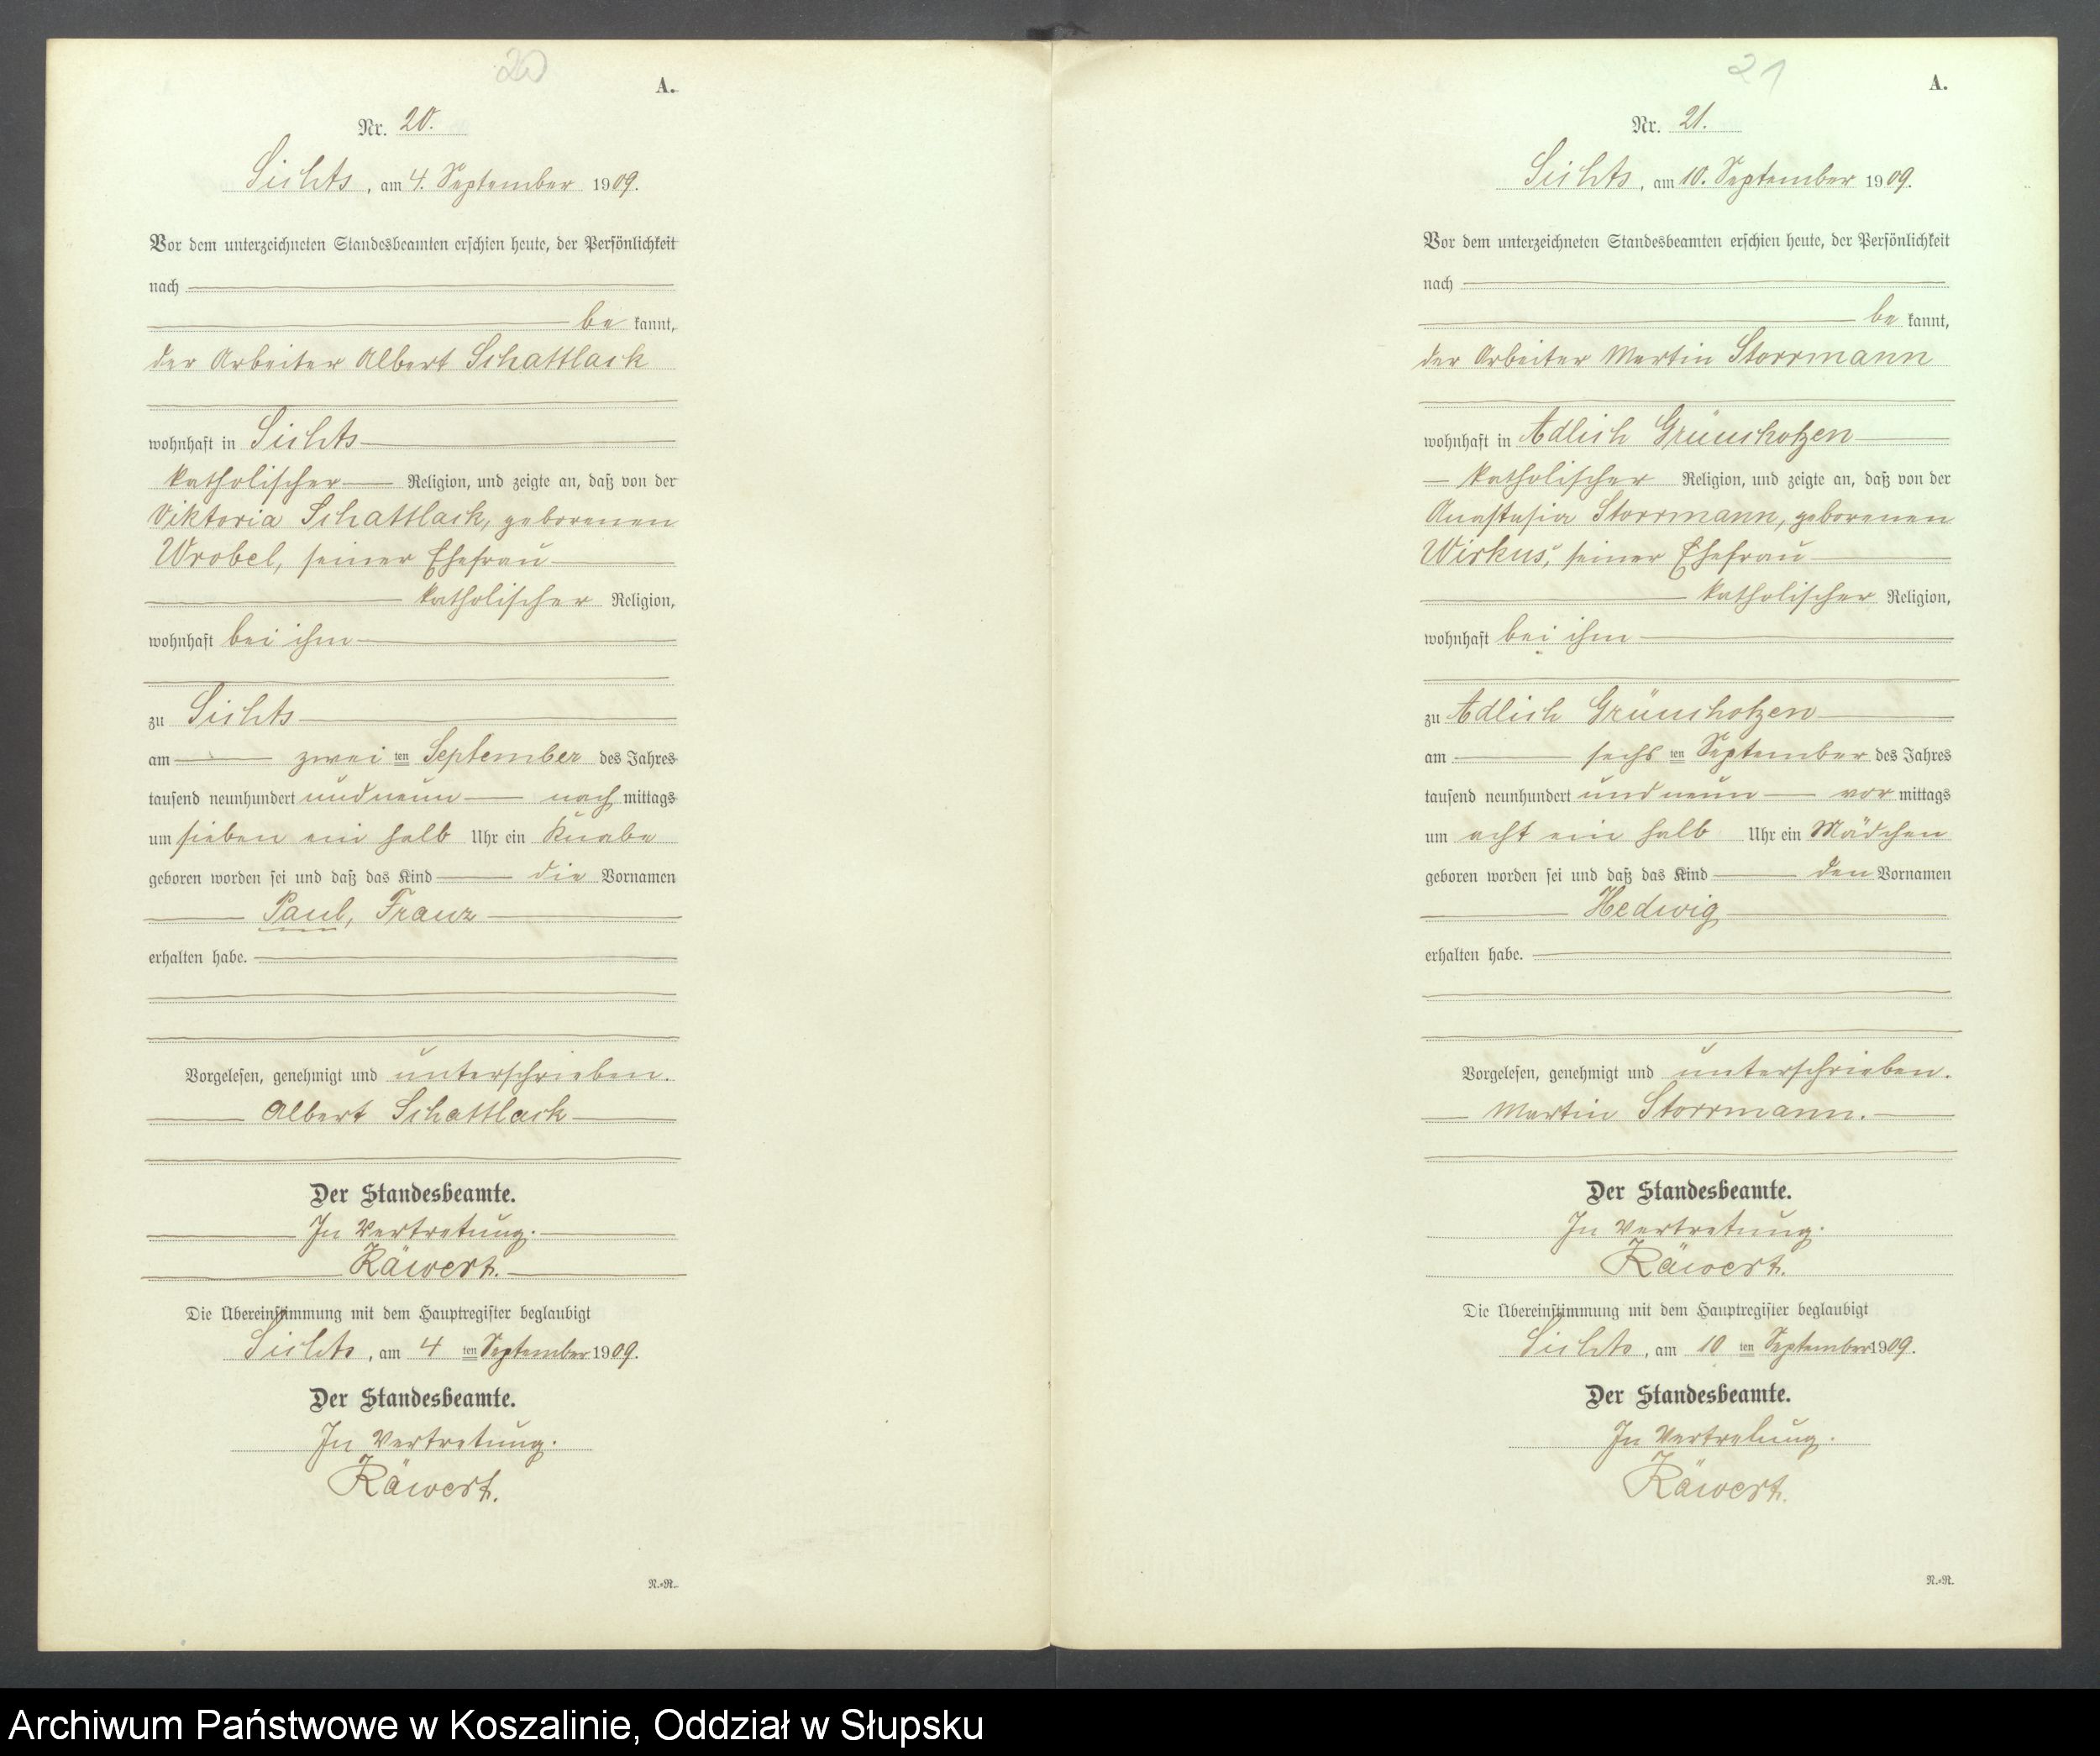 20
A.
Nr. 20.
Sichts, am 4. September 1909.
Vor dem unterzeichneten Standesbeamten erschien heute, der Persönlichkeit
nach
be kannt,
der Arbeiter Albert Schattlack
wohnhaft in Sichts
katholischer Religion, und zeigte an, daß von der
Viktoria Schattlack, geborenen
Wrobel, seiner Ehefrau
katholischer Religion,
wohnhaft bei ihm
zu Sichts
am zwei ten September des Jahres
tausend neunhundert und neun nach mittags
um sieben ein halb Uhr ein Knabe
geboren worden sei und daß das Kind die Vornamen
Paul, Franz
erhalten habe.
Vorgelesen, genehmigt und unterschrieben.
Albert Schattlack
Der Standesbeamte.
In Vertretung.
Räwert.
Die Übereinstimmung mit dem Hauptregister beglaubigt
Sichts, am 4 ten September 1909.
Der Standesbeamte.
In Vertretung.
Räwert.
N.-R.
21
A.
Nr. 21.
Sichts, am 10. September 1909.
Vor dem unterzeichneten Standesbeamten erschien heute, der Persönlichkeit
nach
be kannt,
der Arbeiter Martin Storrmann
wohnhaft in Adlich Grünchotzen
katholischer Religion, und zeigte an, daß von der
Anastasia Storrmann, geborenen
Wirkus, seiner Ehefrau
katholischer Religion,
wohnhaft bei ihm
zu Adlich Grünchotzen
am sechs ten September des Jahres
tausend neunhundert und neun vor mittags
um acht ein halb Uhr ein Mädchen
geboren worden sei und daß das Kind den Vornamen
Hedwig
erhalten habe.
Vorgelesen, genehmigt und unterschrieben.
Martin Storrmann.
Der Standesbeamte.
In Vertretung.
Räwert.
Die Übereinstimmung mit dem Hauptregister beglaubigt
Sichts, am 10 ten September 1909.
Der Standesbeamte.
In Vertretung.
Räwert.
N.-R.
Archiwum Państwowe w Koszalinie, Oddział w Słupsku